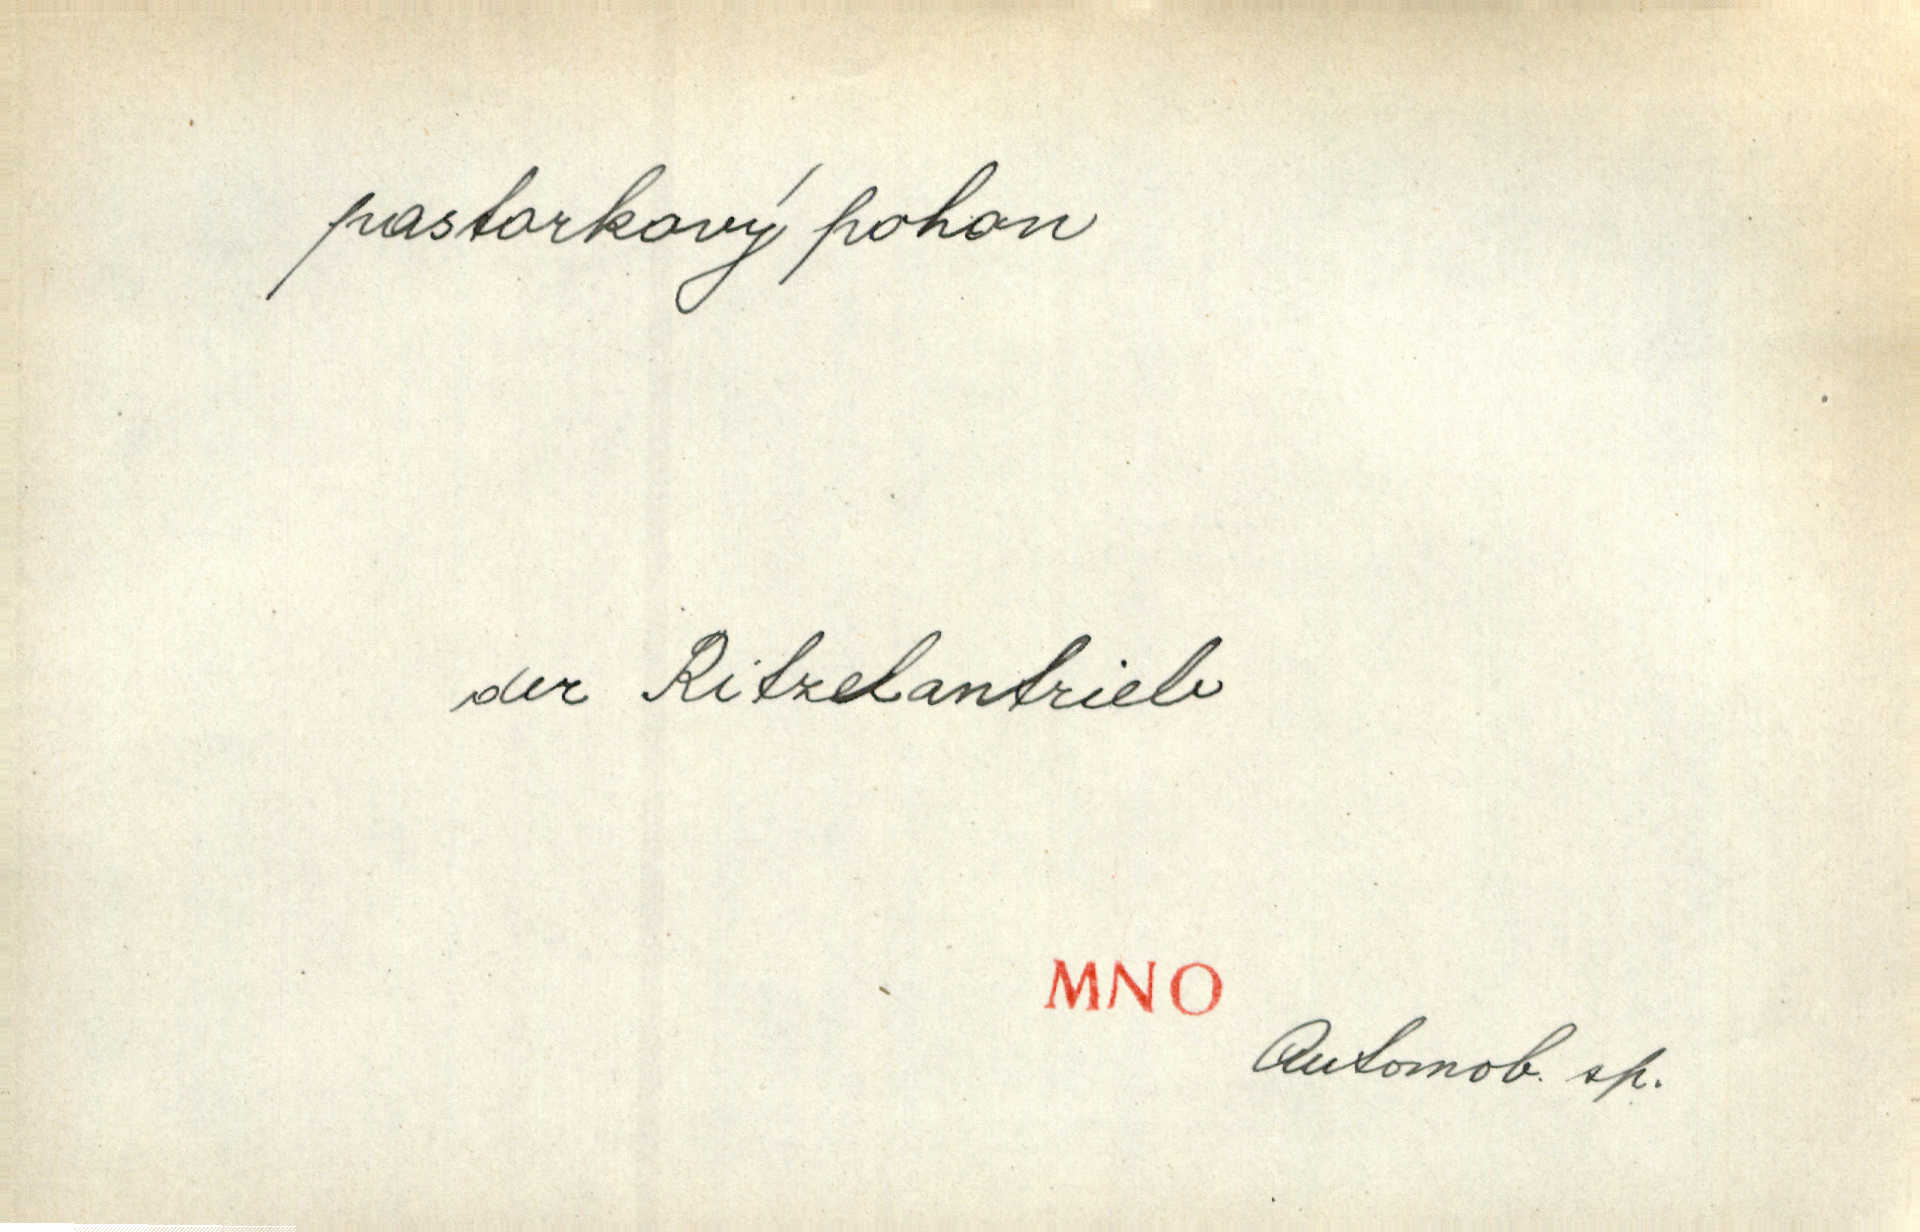 pastorkový pohon
der Ritzelantrieb
MNO
Automob. sp.